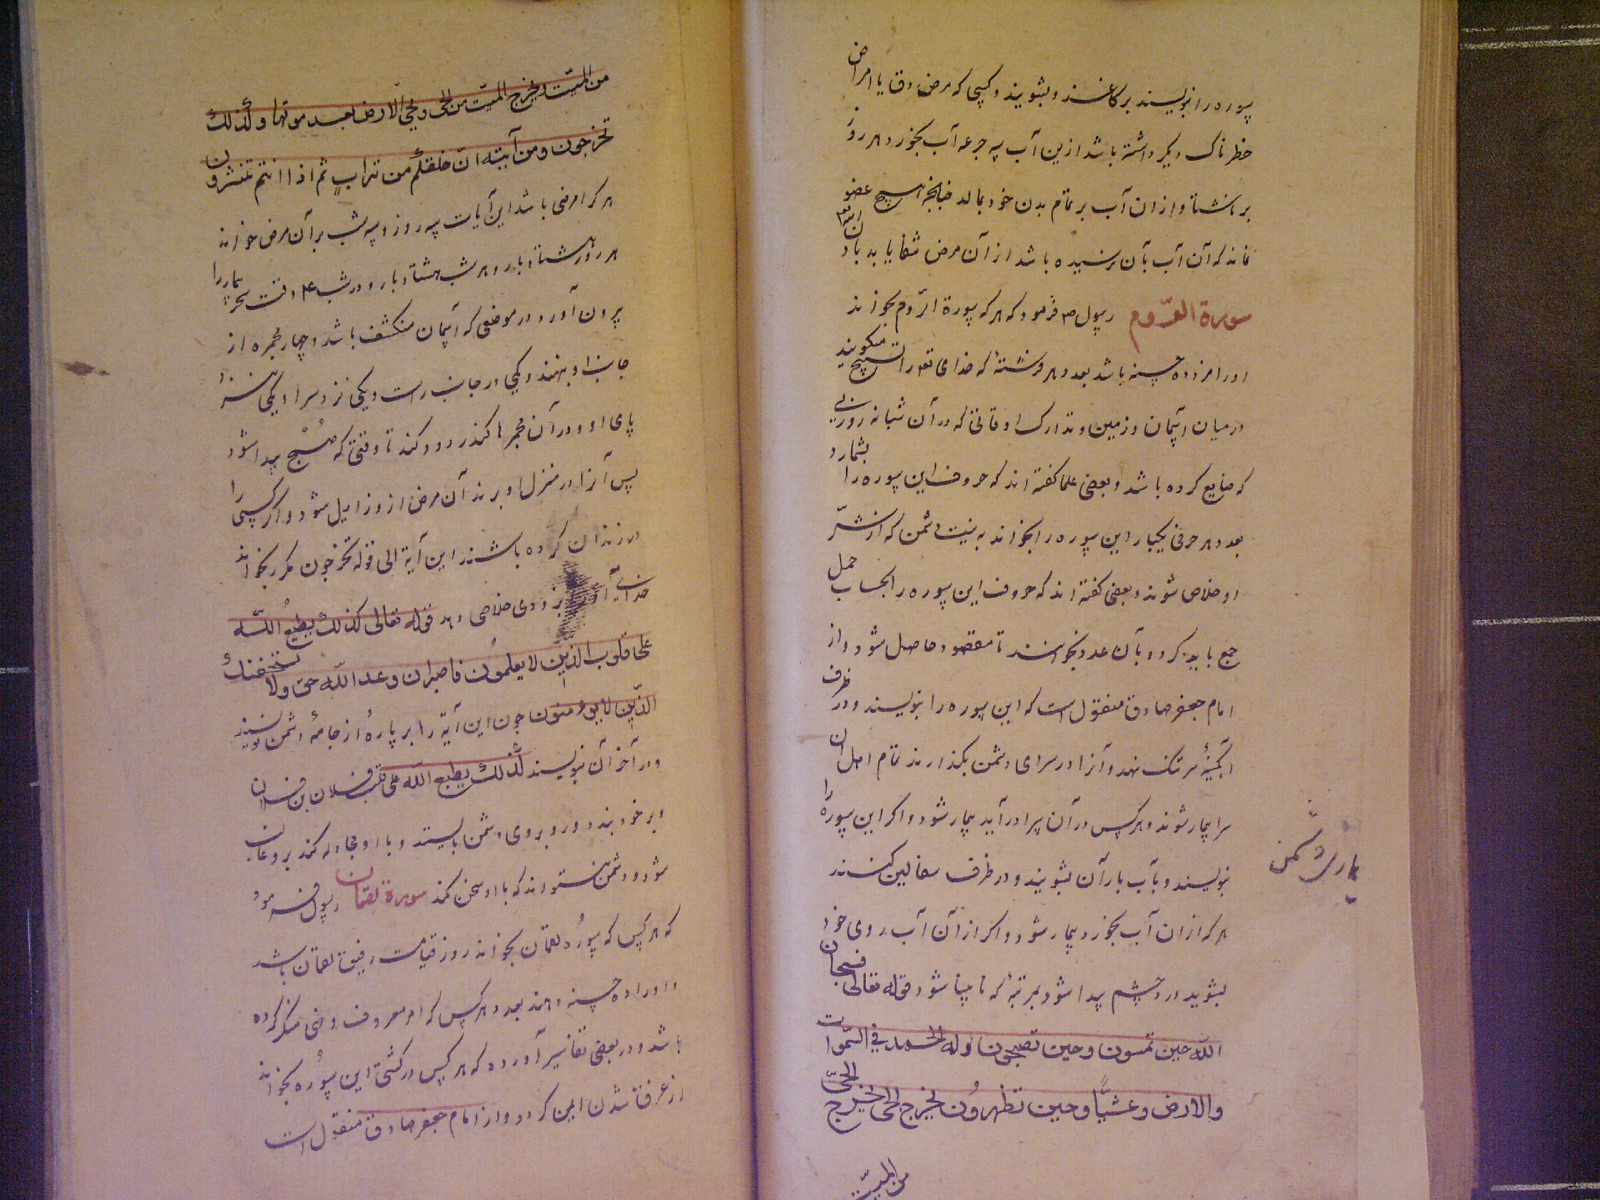 سوره را بنویسند بر کاغذ و بشویند و کسی که مرض دق یا امراض
خطرناک دیگر داشته باشد ازین آب سه جرعه آب بخورد هر روز
بر ناشتا و از ان آب بر تمام بدن خود بمالد چنانچه هیچ عضو
نماند که آن آب بآن نرسیده باشد از آن مرض شفا یابد باذن الله
سورة الروم رسول ص فرمود که هر که سورة الروم بخواند
او را مزد ده حسنه باشد بعدد هر فرشتهٔ که خدای تعه را تسبیح میکویند
در میان آسمان و زمین و تدارک اوقاتی که در آن شبانه روزی
که ضایع کرده باشد و بعضی علما کفته اند که حروف این سوره را بشمارد
بعدد هر حرفی یکبار این سوره را بخواند به نیت دشمن که از شر
او خلاص شوند و بعضی کفته اند که حروف این سوره را بحساب جمل
جمع باید کرد و بآن عدد بخوانند تا مقصود حاصل شود و از
امام جعفر صادق منقول است که این سوره را بنویسند و در ظرف
آبکینهٔ سرتنک نهد و آنرا در سرای دشمن بکذارند تمام اهل ان
سرا بیمار شوند و هر کس در آن سرا در آید بیمار شود و اکر این سوره را
بنویسند و بآب باران بشویند و در ظرف سفالین کنند
هر که از ان آب بخورد بیمار شود و اکر از آن آب روی خود
بشوید درد چشم پیدا شود بمرتبهٔ که نابینا شود قوله تعالی فسبحان
الله حین تمسون و حین تصبحون و له الحمد فی السموات
والارض و عشیا و حین تظهرون یخرج الحی
من المیت
من المیت و یخرج المیت من الحی و یحیی الارض بعد موتها و کذلک
تخرجون و من آیته ان خلقکم من تراب ثم اذا انتم تنتشرون
هر کرا مرضی باشد این آیات سه روز و سه شب بر آن مرض خواند
هر روز هشتاد بار و هر شب هشتاد بار و در شب ۴ وقت سحر بیمار را
بیرون آورد در موضعی که آسمان منکشف باشد و چهار مجمره از
جانب او بنهند یکی در جانب راست و یکی نزد سر او یکی نزد
پای او و در آن مجمرها کندر دود کند تا وقتی که صبح پیدا شود
پس آنرا در منزل او برند آن مرض ازو زایل شود و اکر کسی را
در زندان کرده باشند این آیة الی قوله تخرجون مکرر بخواند
خدای بزودی خلاصی دهد قوله تعالی کذلک یطبع الله
علی قلوب الذین لا یعلمون فاصبر ان وعد الله حق ولا یستخفنک
الذین لا یوقنون چون این آیة را بر پارهٔ از جامهٔ دشمن نویسند
و در آخر آن نویسند کذلک یطبع الله علی قلب فلان بن فلان
و بر خود بندد و روبروی دشمن بایستد و با او مجادله کند بر و غالب
شود و دشمن نتواند که با او سخن کند سورة لقمان رسول فرمود
که هر کس که سورهٔ لقمان بخواند روز قیامت رفیق لقمان باشد
و او را ده حسنه دهند بعدد هر کس که امر معروف و نهی منکر کرده
باشد و در بعضی تفاسیر آورده که هر کس در کشتی این سوره بخواند
از غرق شدن ایمن کردد و از امام جعفر صادق منقول است